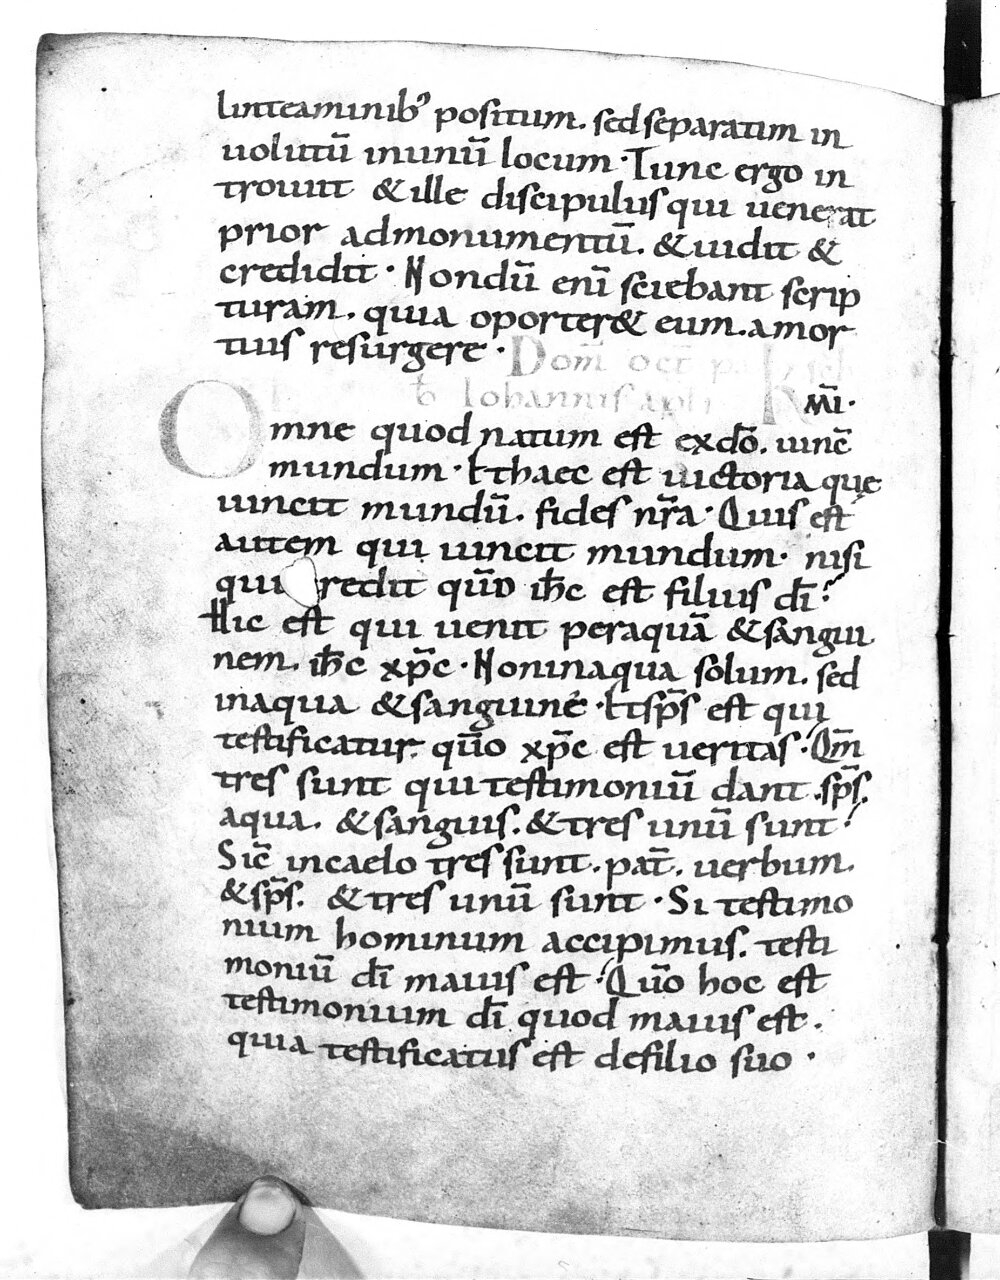 linteaminibꝰ positum. sed separatim in
uolutū inunū locum · Tunc ergo in
trouit & ille discipulus qui uenerat
prior admonumentū. & uidit &
credidit · Nondū enī sciebant scrip
turam. quia oporter& eum. amor
tuis resurgere · Dom̄ oct̄
Iohannis apli k̄mī ·
Omne quod natum est exdō. uinc̄
mundum · & haec est uictoria que
uincit mundū. fides nr̄a · Quis est
autem qui uincit mundum · nisi
qui redit qūo ih̄c est filius dī?
Hic est qui uenit peraquā & sangui
nem. ih̄c xp̄c · Noninaqua solum. sed
inaqua & sanguine · Et sp̄s est qui
testificatur. qūo xp̄c est ueritas · Qm̄
tres sunt qui testimoniū dant. sp̄s.
aqua. & sanguis. & tres unū sunt ·
Sic̄ incaelo tres sunt. pat̄. uerbum.
& sp̄s. & tres unū sunt · Si testimo
nium hominum accipimus. testi
moniū dī maius est · Qūo hoc est
testimonium dī quod maius est.
quia testificatus est defilio suo ·